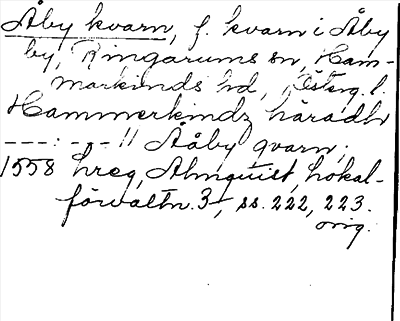 Åby kvarn, f. kvarn i Åby
by, Ringarums sn, Ham-
markinds hd, Österg. l.
Hammerkindz häradh
---:--- // Ååby qvarn;
1558 hreg, Almquist, Lokal-
förvaltn. 3, ss. 222, 223.
orig.